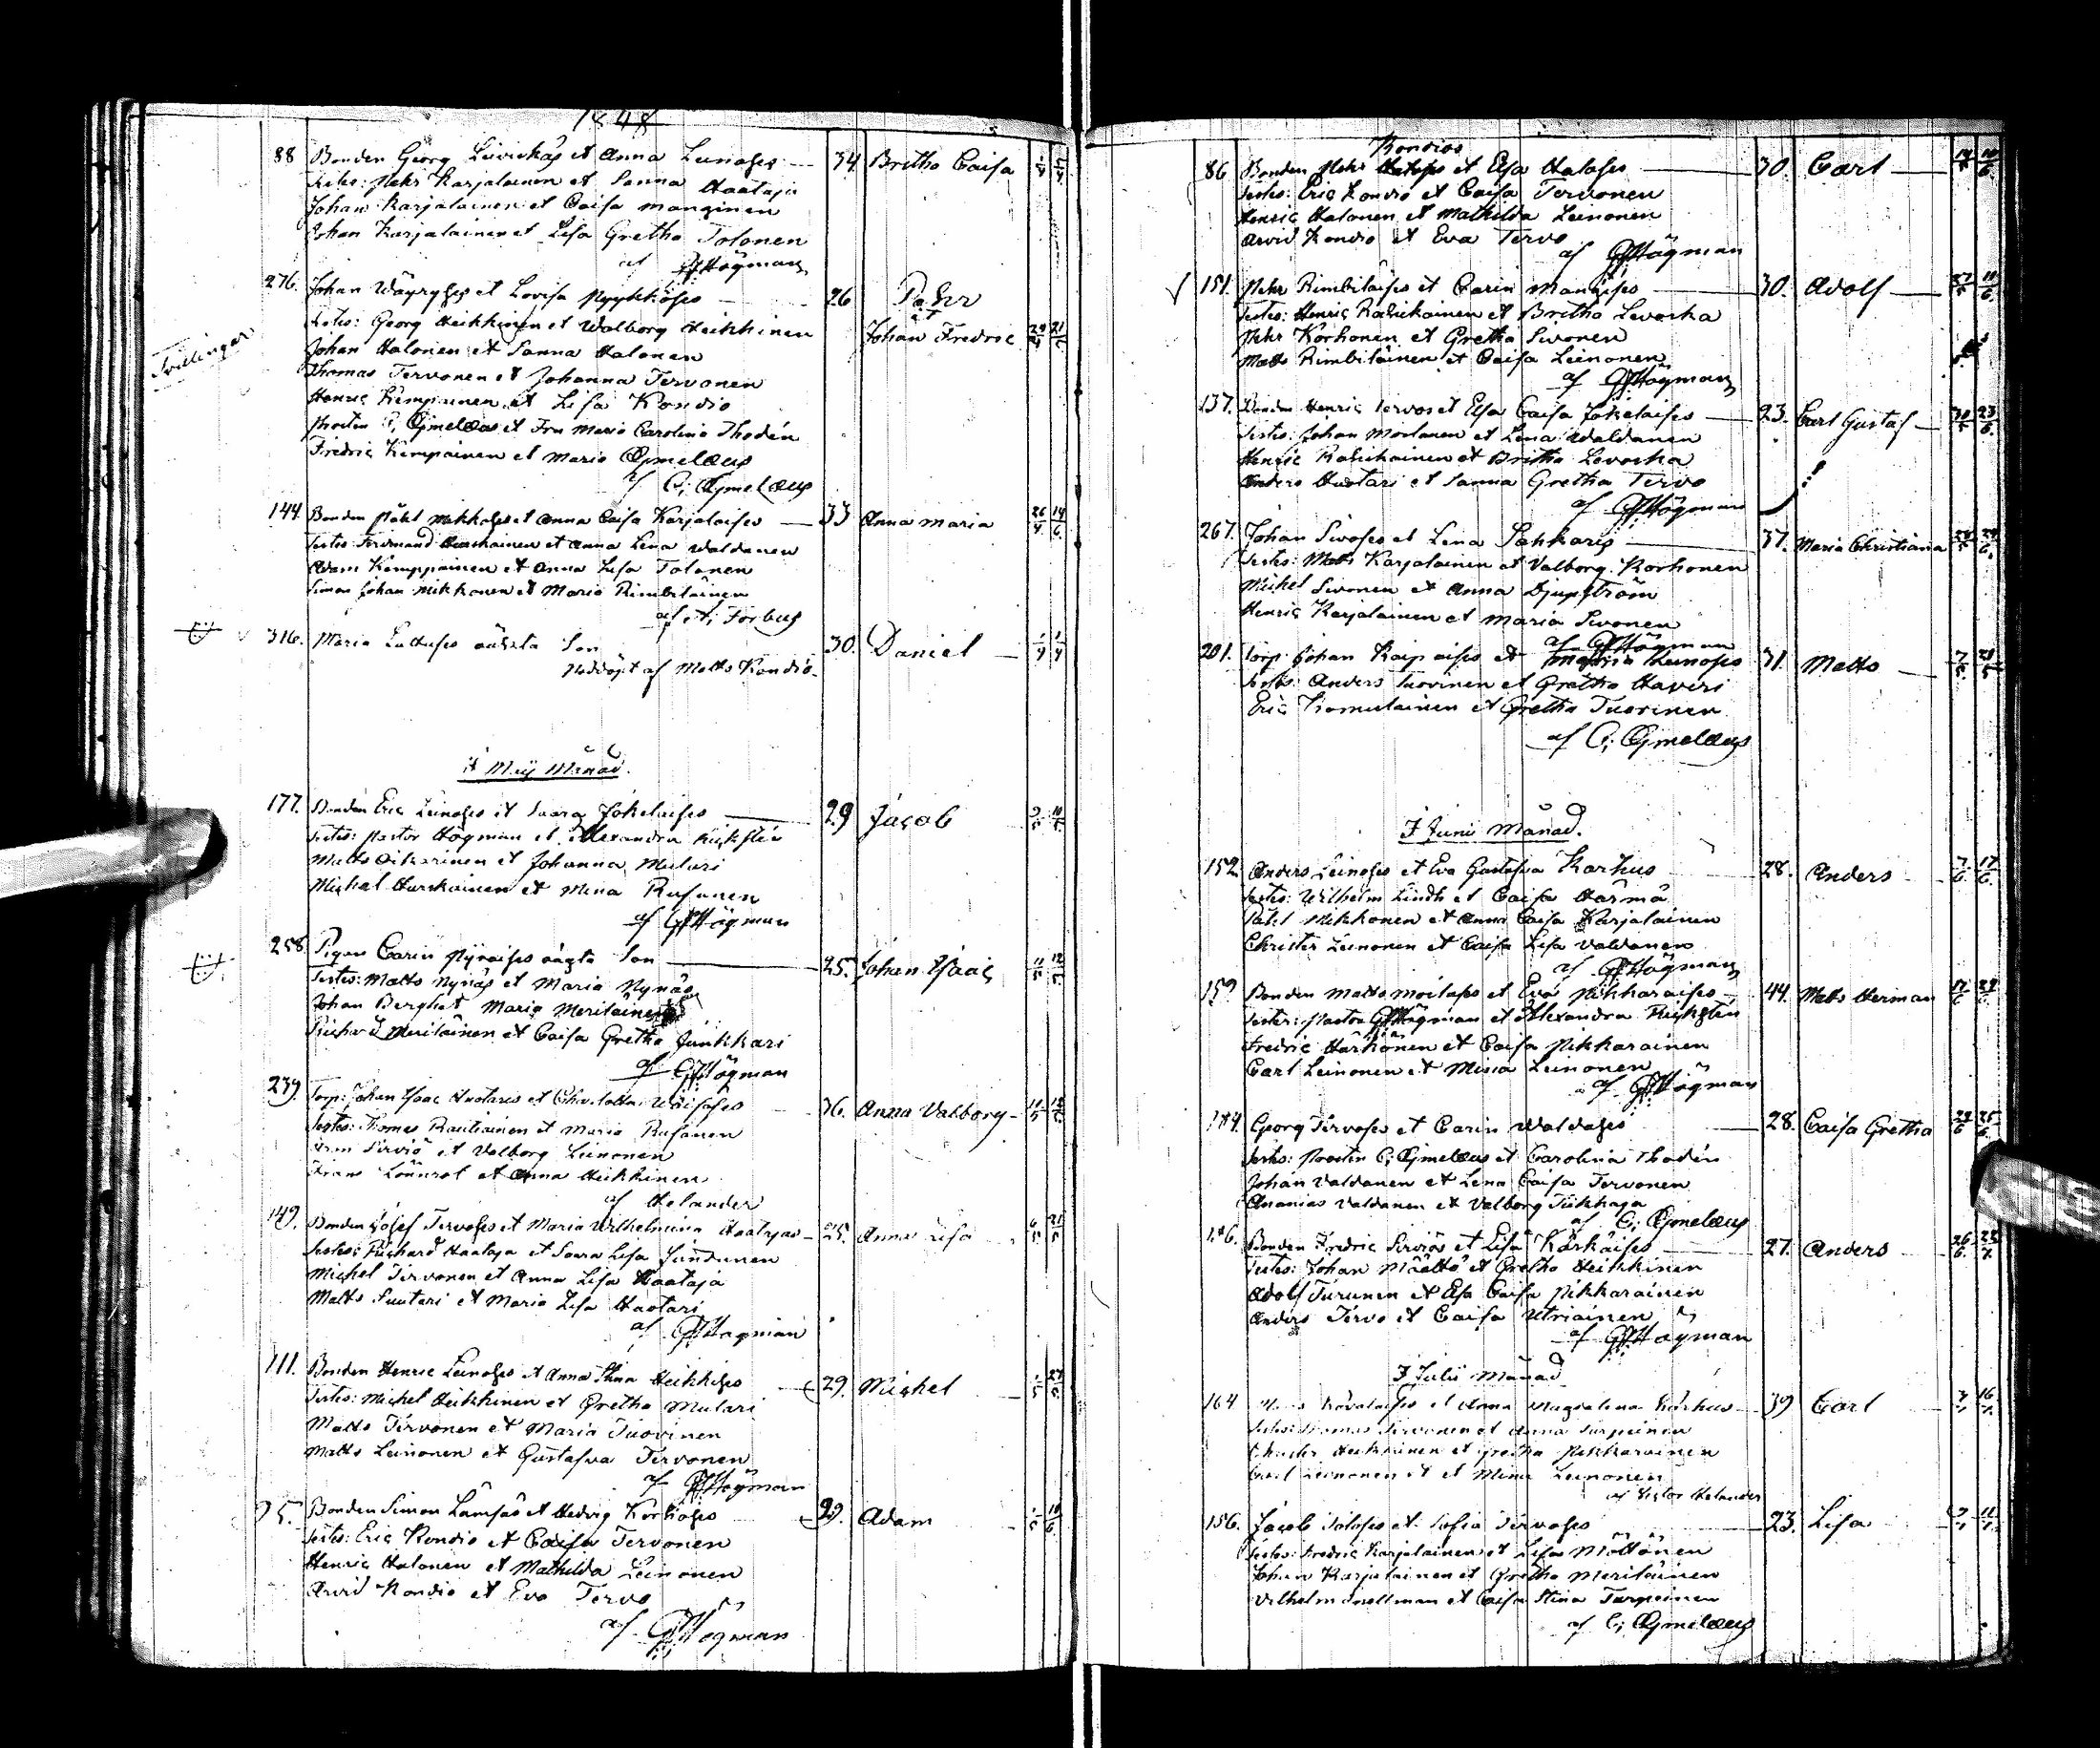 1848
88 Bonden Georg Leiviskäs et Anna Leinoses 34 Britha Caisa
Testes: Pehr Karjalainen et Sanna Haataja
Johan Karjalainen et Caisa Manginen
Johan Karjalainen et Lisa Gretha Tolonen
af GHögman
Tvillingar
276. Johan Wäyryses et Lovisa Pyykköses 26 Pehr
et
Testes: Georg Heikkinen et Walborg Heikkinen Johan Fredric
Johan Halonen et Sanna Halonen
Thomas Tervonen et Johanna Tervonen
Henric Kemppainen et Lisa Kondio
Prosten C; Ogmelæus et Fru Maria Carolina Thodén
Fredric Kempainen et Maria Ogmelæus
af C; Ogmelæus
144 Bonden Påhl Mikkoses et Anna Caisa Karjalaises 33 Anna Maria 26/4 14/6
Testes Ferdinand Hurskainen et Anna Lena Waldanen
Adam Kemppainen et Anna Lisa Tolonen
Simon Johan Mikkonen et Maria Rimbiläinen
af A; Forbus
316. Maria oächta Son 30. Daniel 1/4 1/4
Nöddöpt af Matts Kondio
i Maij Månad.
177. Bonden Eric Leinoses et Saara Jokelaises 29 Jacob
Testes: Pastor Högman et Alexandra
Matts Oikarinen et Johanna Mulari
Michel Hurskainen et Mina Rusanen
af GHögman
258 Pigan Carin Pyräises oägta Son 25. Johan Isaac
Testes: Matts Nynäs et Maria Nynäs
Johan Bergh et Maria Meriläinen
Richard Meriläinen et Caisa Gretha Junkkari
af GHögman
239. Torp: Johan Isaac Huotares et 36. Anna Valborg
Testes: Thomas Rautiainen et Maria Rusanen
Sirviö et Valborg Leinonen
Frans Lönnrot et Anna Heikkinen
af Helander
149. Bonden Josef Tervoses et Maria Wilhelmina Haatajas 25. Anna Lisa
Testes: Richard Haataja et Saara Lisa Jundunen
Michel Tervonen et Anna Lisa Haataja
Matts Huotari et Maria Lisa Huotari
af GHögman
111. Bonden Henric Leinoses et Anna Stina Heikkises 29. Michel
Testes: Michel Heikkinen et Gretha Mulari
Matts Tervonen et Maria Tuovinen
Matts Leinonen et Gustafva Tervonen
af GHögman
95. Bonden Simon Lämsäs et Hedvig Korhoses 29. Adam
Testes: Eric Kondio et Caisa Tervonen
Henric Halonen et Mathilda Leinonen
Arvid Kondio et Eva Tervo
af GHögman
Kondios
86 Bonden Pehr et Elsa Haloses 30. Carl
Testes: Eric Kondio et Caisa Tervonen
Henric Halonen et Mathilda Leinonen
Arvid Kondio et Eva Tervo
af GHögman
151. Pehr Rimbiläises et Carin Mangises 30. Adolf
Testes: Henric Karhukainen et Britha Levoska
Pehr Korhonen et Gretha Sivonen
Matts Rimbiläinen et Caisa Leinonen
af GHögman
137. Bonden Henric Tervos et Elsa Caisa Jokelaises 23. Carl Gustaf 30/5 23/6
Testes: Johan Moilanen et Lena Waldanen
Henric et Britha Levoska
Anders Huotari et Sanna Gretha Tervo
af GHögman
267. Johan Sivoses et Lena Sahkaris 37. Maria Christiana
Testes: Matts Karjalainen et Valborg Korhonen
Michel Sivonen et Anna Djupström
Henric Karjalainen et Maria Sivonen
af GHögman
201. Torp: Johan Kaipaises et Maria Leinoses 31. Matts
Testes: Anders Tuovinen et Gretha Haveri
Eric Komulainen et Gretha Tuovinen
af C; Ogmelæus
I Junii Månad.
152 Anders Leinoses et Eva Gustafva Karhus 28. Anders 7/6 17/6
Testes: Wilhelm Lindh et Caisa Härmä
Påhl Mikkonen et Anna Caisa Karjalainen
Christer Leinonen et Caisa Lisa Valdanen
af GHögman
159 Bonden Matts Moilases et Eva Pikkaraises 44. Matts Herman
Testes: Pastor GHögman et Alexandra
Fredric Härkönen et Caisa Pikkarainen
Carl Leinonen et Mina Leinonen
af GHögman
184. Georg Tervoses et Carin Waldases 28. Caisa Gretha
Testes: Prosten C; Ogmelæus et Carolina Thodén
Johan Valdanen et Lena Caisa Tervonen
Ananias Valdanen et Valborg Tükkaja
af C; Ogmelæus
Bonden Fredric Serviös et Lisa Kärkäises 27. Anders
Testes: Johan Määttö et Gretha Heikkinen
Adolf Turunen et Elsa Caisa Pikkarainen
Anders Tervo et Caisa Utriainen
af GHögman
I Julii Månad
164 Kovalaises et Anna Magdalena Karhus 39 Carl
Testes: Thomas Tervonen et Anna Turpeinen
Christer Heikkinen et Gretha Pikkarainen
Carl Leinonen et et Mina Leinonen
af Victor Helander
156. Jacob Toloses et Sofia Tervoses 23. Lisa
Testes: Fredric Karjalainen et Lisa Möttönen
Johan Karjalainen et Gretha Meriläinen
Vilhelm Snellman et Caisa Stina Turpeinen
af C; Ogmelæus